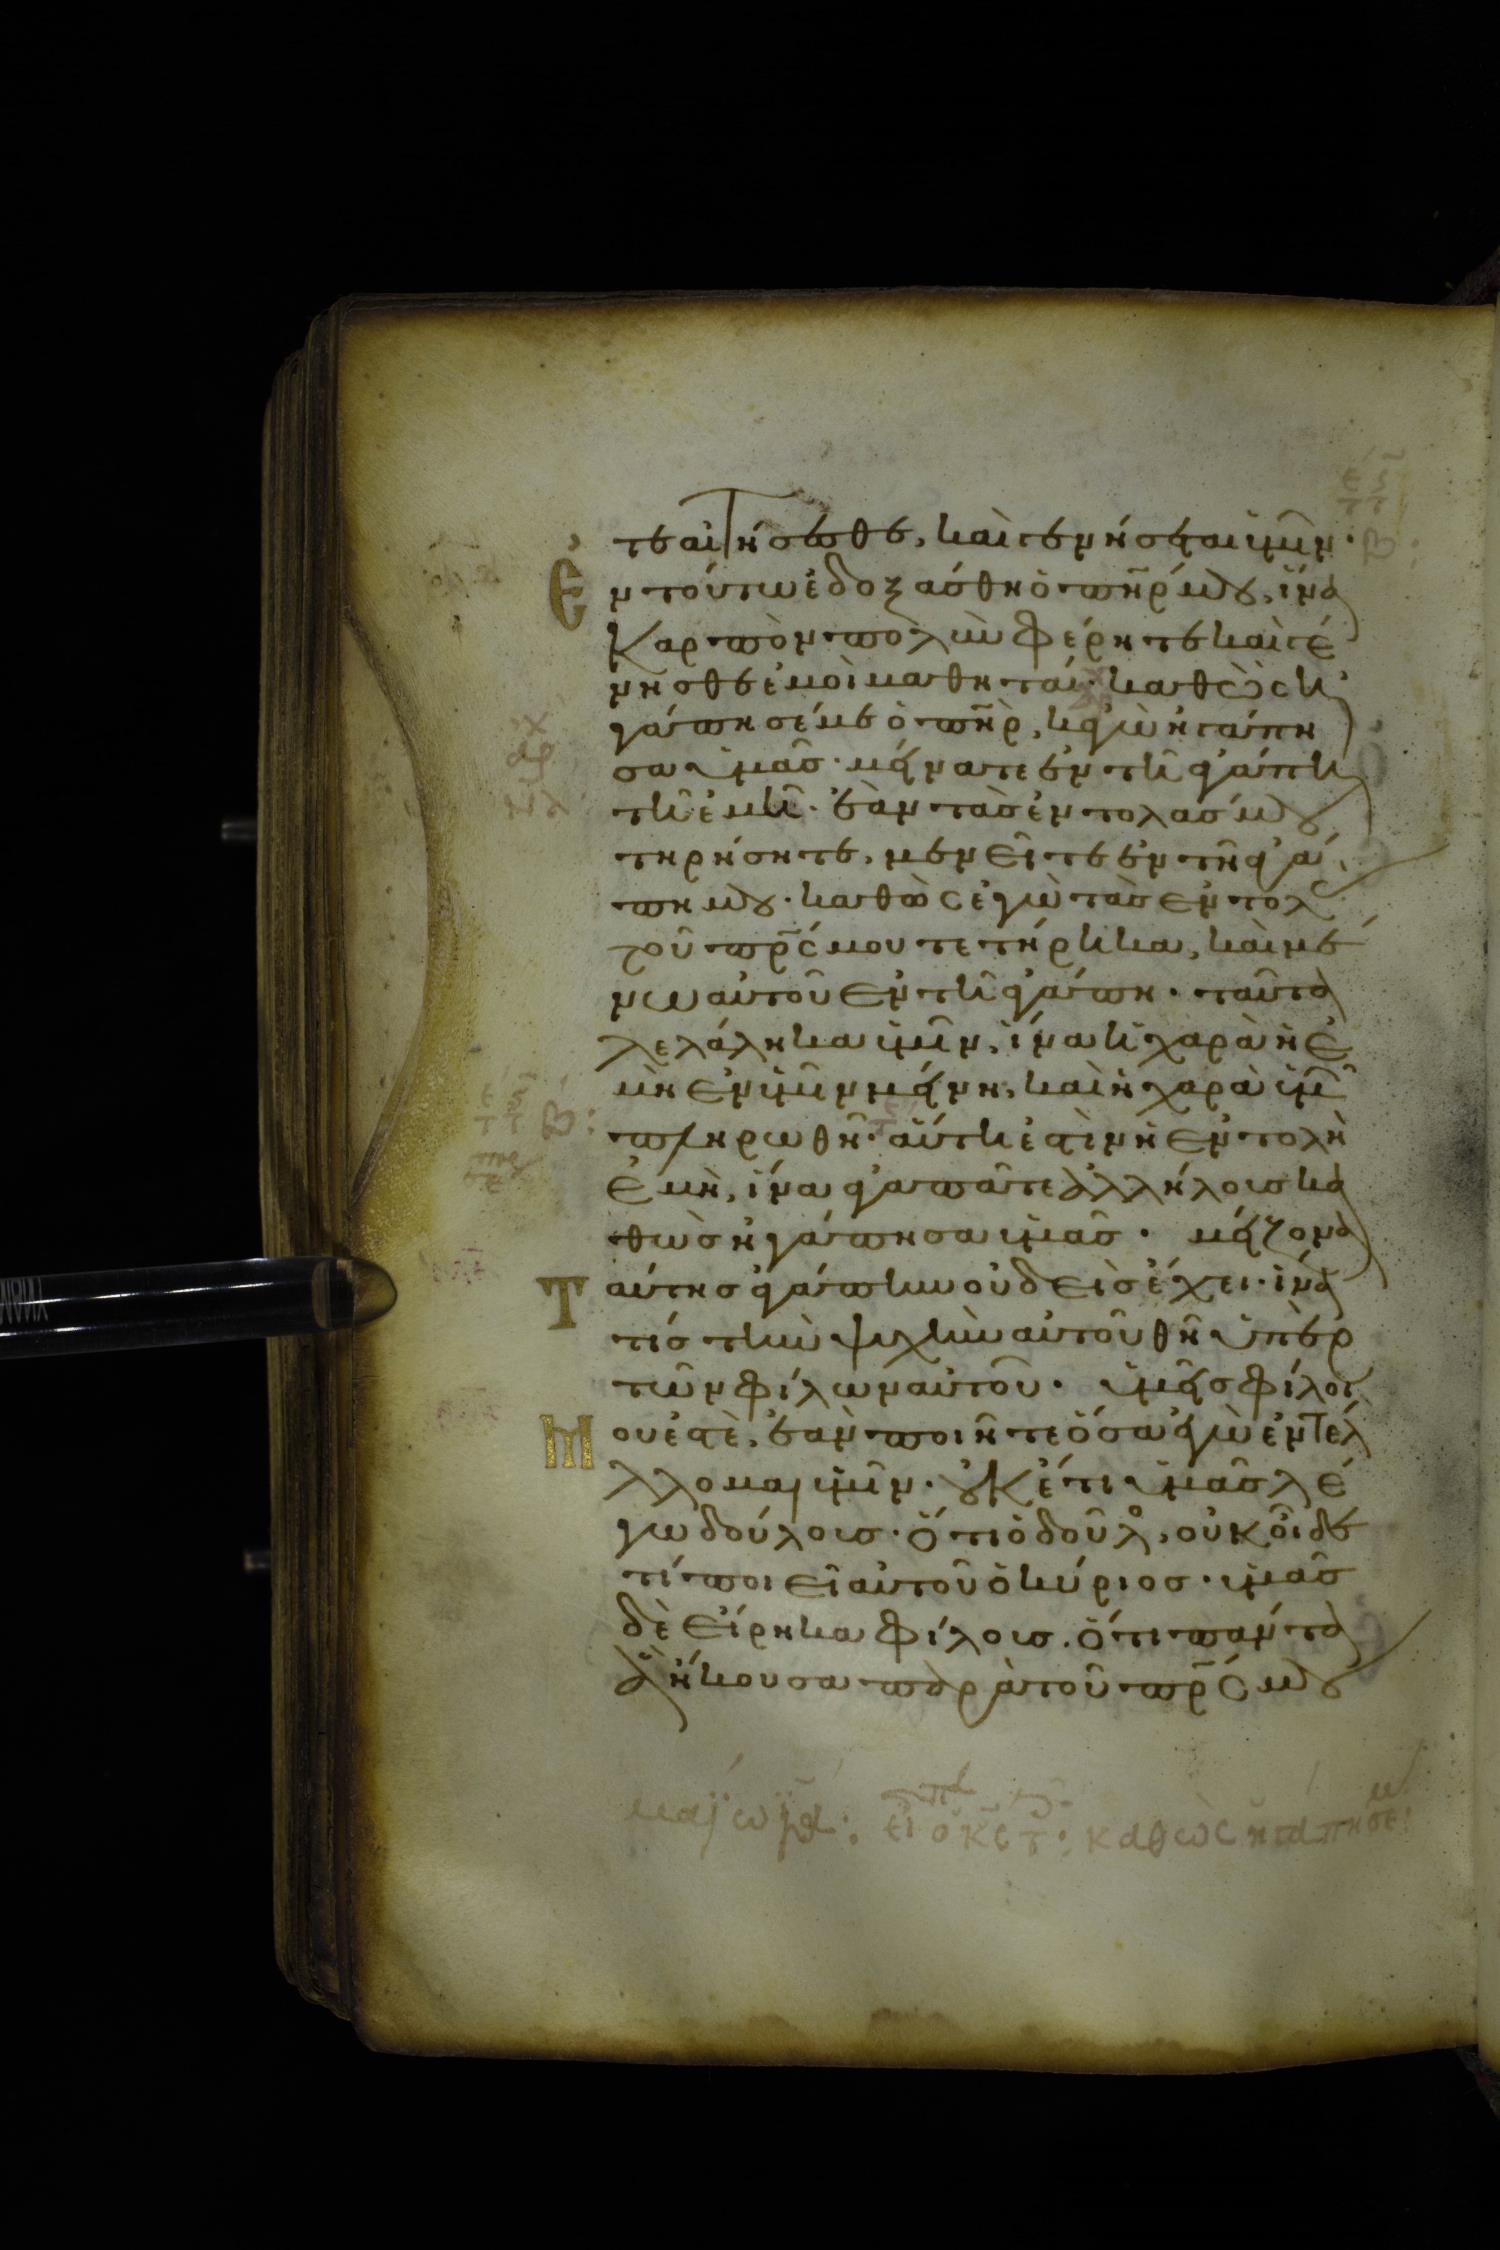 τε αἰτήσεσθε, καὶ γενήσεται ὑμῖν·
Ἐν τούτω ἐδοξάσθη ὁ πηρ μου, ἵνα
καρπὸν πολὺν φέρητε καὶ γέ
νησθε ἐμοὶ μαθηταί· καθὼς ἠ
γάπησέ με ὁ πηρ, κἀγὼ ἠγάπη
σα ὑμᾶς· μείνατε ἐν τῆ ἀγάπη
τῆ ἐμῆ· ἐὰν τὰς ἐντολάς μου
τηρήσητε, μενεῖτε ἐν τῆ ἀγά
πη μου· καθὼς ἐγὼ τὰς ἐντολ
τοῦ πρς μου τετήρηκα, καὶ μέ
νω αὐτοῦ ἐν τῆ ἀγάπη· ταῦτα
λελάληκα ὑμῖν, ἵνα ἡ χαρὰ ἡ ἐ
μὴ ἐν ὑμῖν μείνη, καὶ ἡ χαρὰ ὑμ
πληρωθῆ· αὕτη ἐστὶν ἡ ἐντολὴ
ἐμὴ, ἵνα ἀγαπᾶτε ἀλλήλοις κα
θὼς ἠγάπησα ὑμᾶς· μείζονα
Ταύτης ἀγάπην οὐδεὶς ἔχει· ἵνα
τίς τὴν ψυχὴν αὐτοῦ θῆ ὑπὲρ
τῶν φίλων αὐτοῦ· ὑμεῖς φίλοι
Μου ἐστὲ, ἐὰν ποιῆτε ὅσα ἐγὼ ἐντέλ
λλομαι ὑμῖν· οὐκέτι ὑμᾶς λέ
γω δούλους· ὅτι ὁ δοῦλο, οὐκ οἶδε
τί ποιεῖ αὐτοῦ ὁ κύριος· ὑμᾶς
δὲ εἴρηκα φίλους. ὅτι πάντα
ἃ ἤκουσα παρὰ τοῦ πρς μου
εἶ ὁ κς τ· καθὼς ἠγάπησέ με